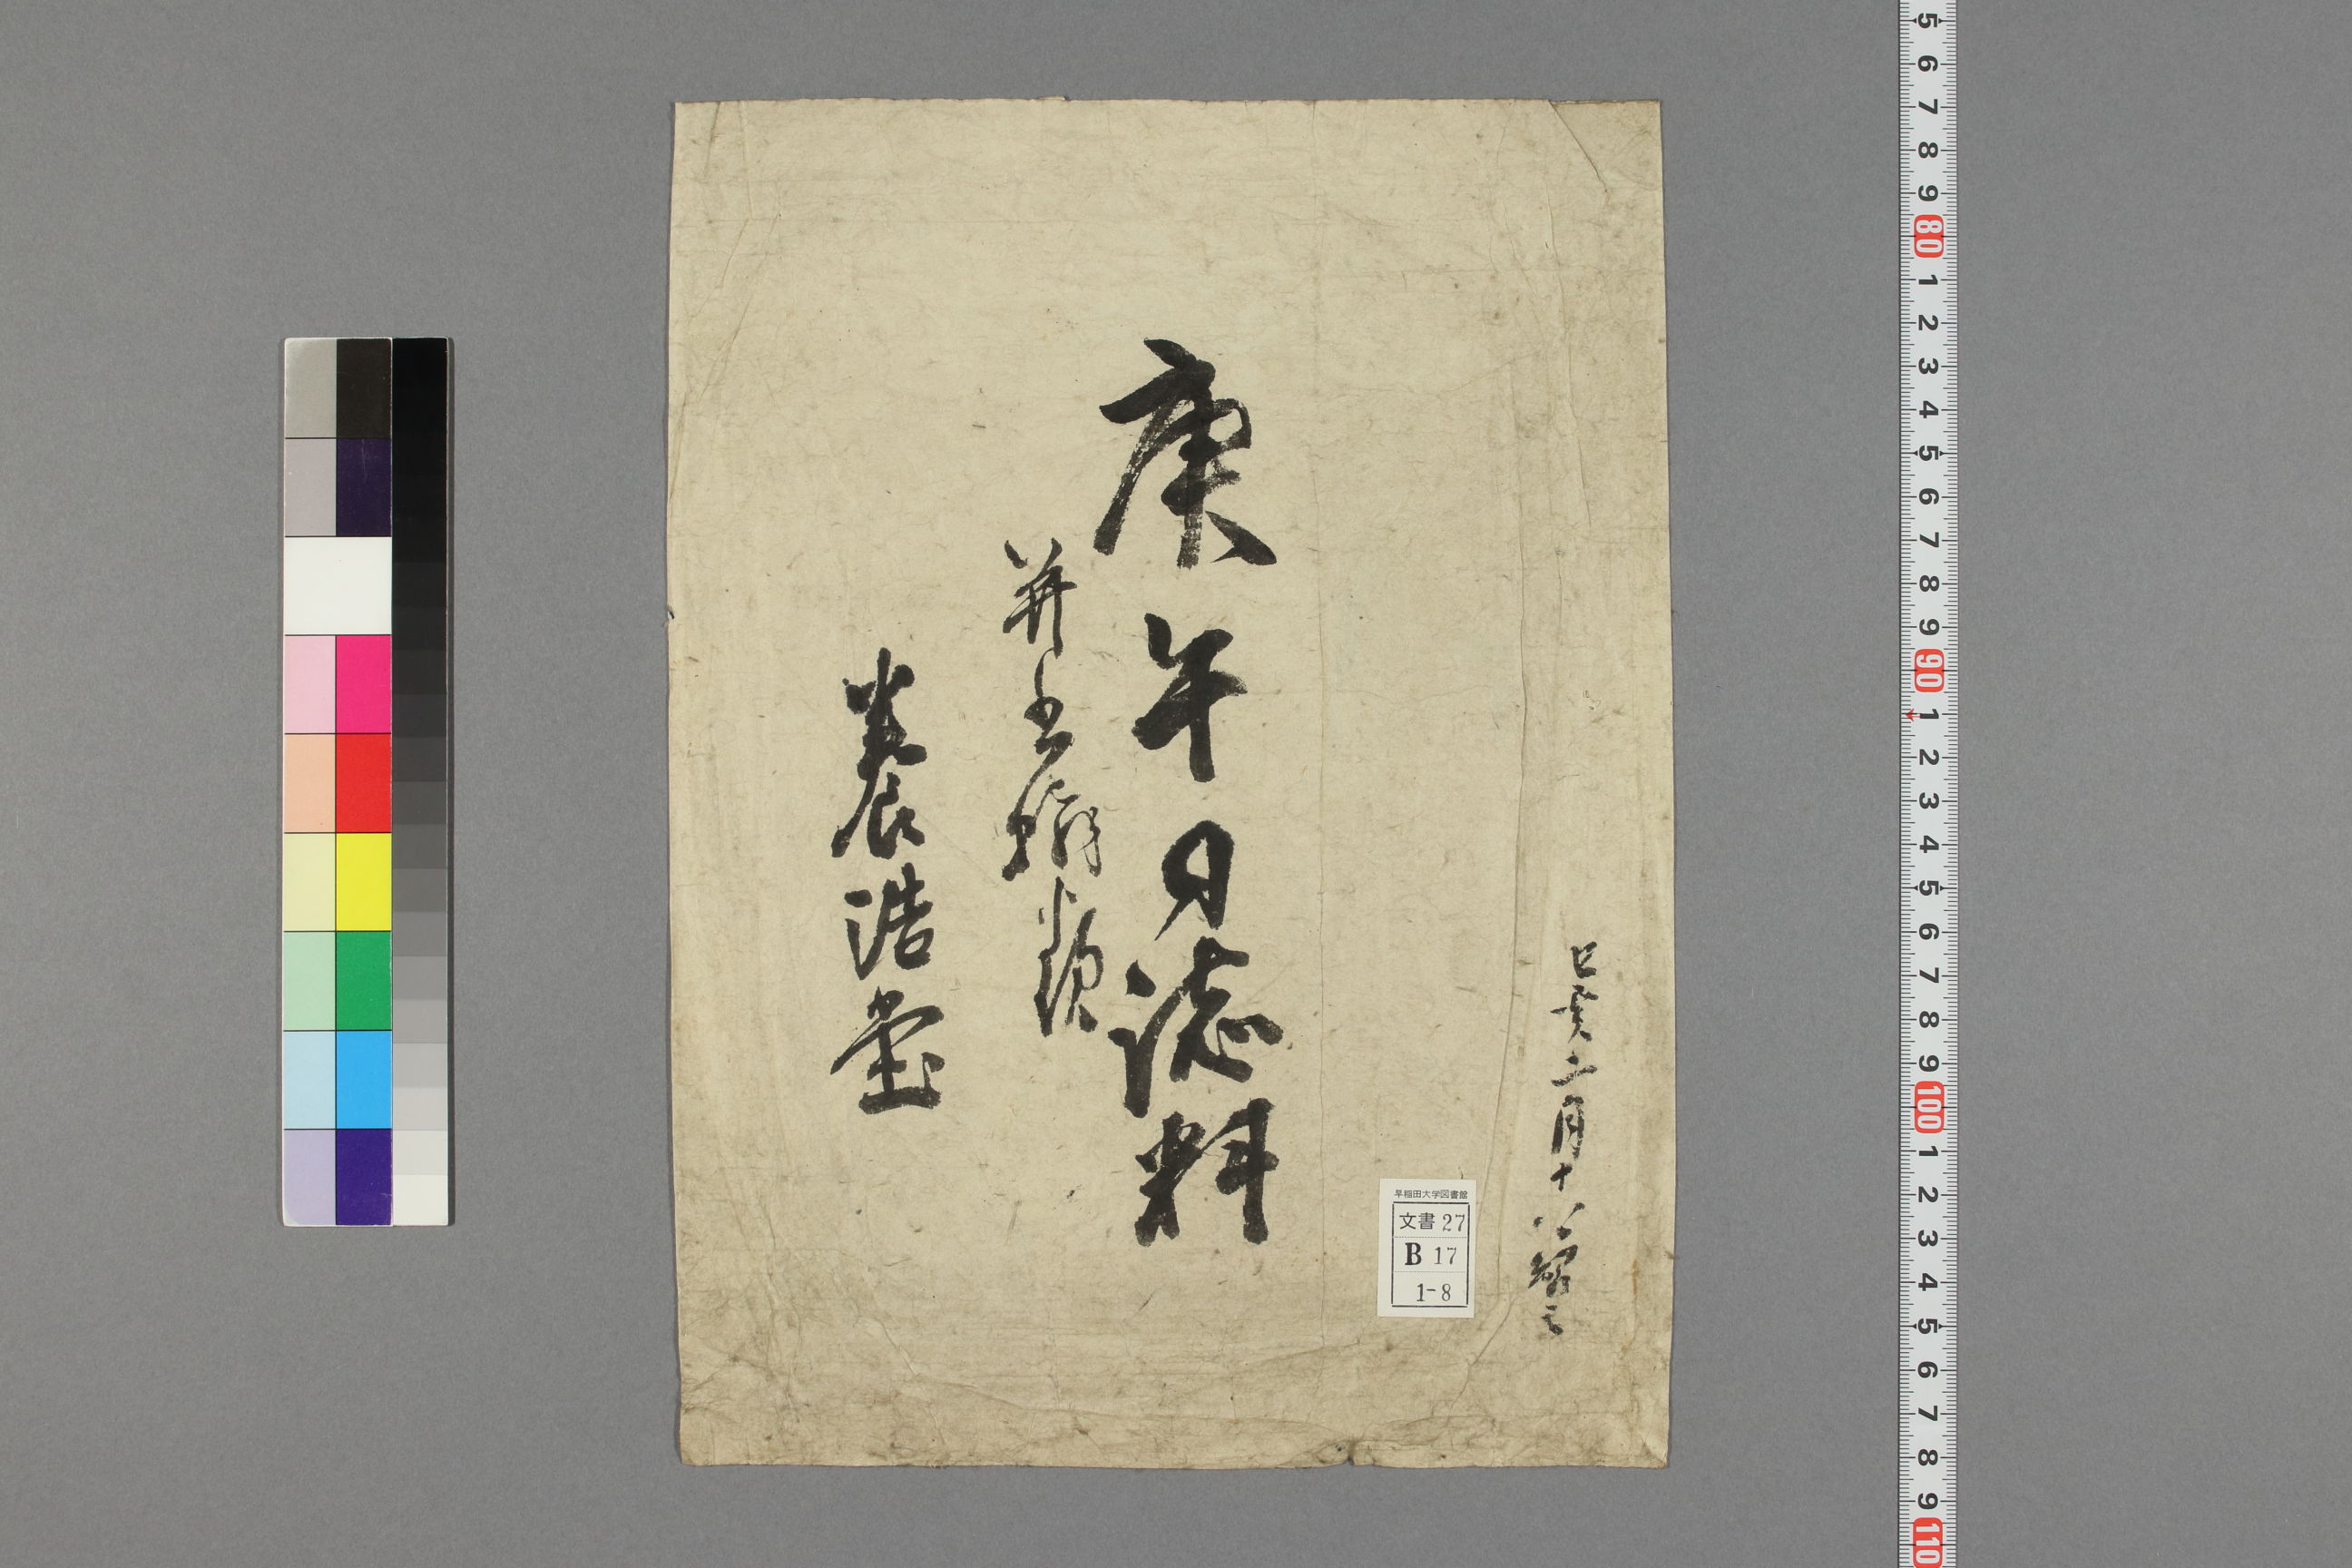 己亥二月十八
庚午日誌料
并書翰類
養浩堂
早稲田大学図書館
文書 27
B 17
1-8
5 6 7 8 9 80 1 2 3 4 5 6 7 8 9 90 1 2 3 4 5 6 7 8 9 100 1 2 3 4 5 6 7 8 9 110